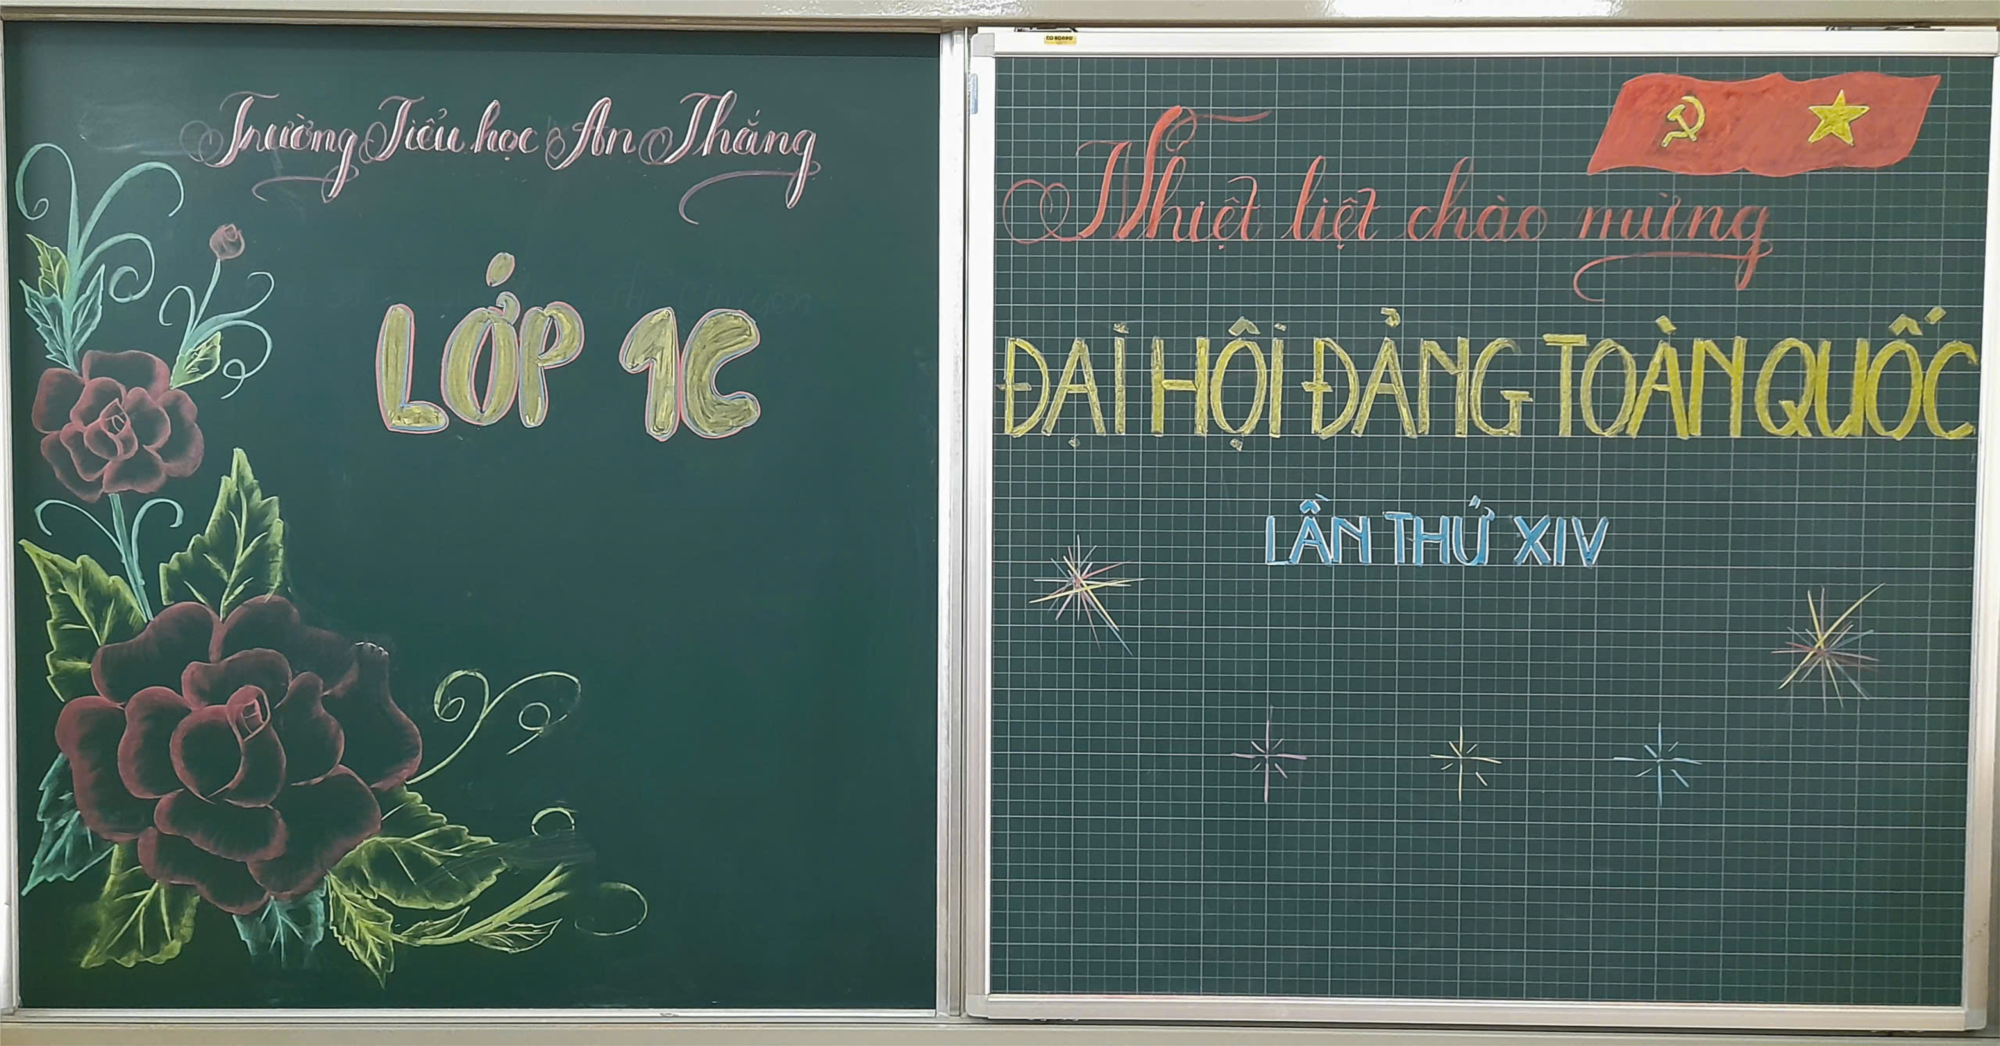 Trường Tiểu học An Thắng
LỚP 1C
Nhiệt liệt chào mừng
ĐẠI HỘI ĐẢNG TOÀN QUỐC
LẦN THỨ XIV